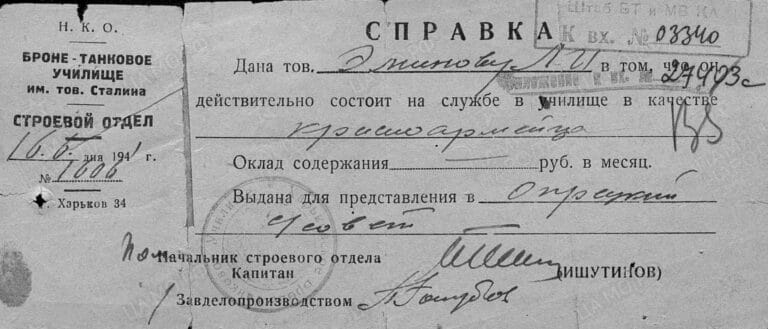 Н. К. О.
БРОНЕ-ТАНКОВОЕ
УЧИЛИЩЕ
им. тов. Сталина
СТРОЕВОЙ ОТДЕЛ
1941 г.
№ 1606
г. Харьков 34
Штаб БТ и МВ КА
К вх. № 03340
СПРАВКА
Дана тов. Эминову Л И в том, что он
27493с
действительно состоит на службе в училище в качестве
красноармейца
Оклад содержания — руб. в месяц.
Выдана для представления в
совет
Пом Начальник строевого отдела
Капитан (ИШУТИНОВ)
Завделопроизводством